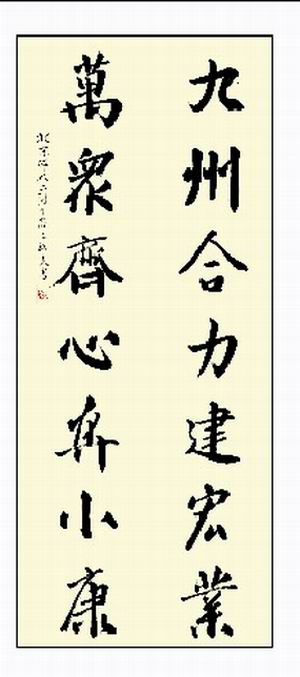 九州合力建宏業
萬衆齊心奔小康